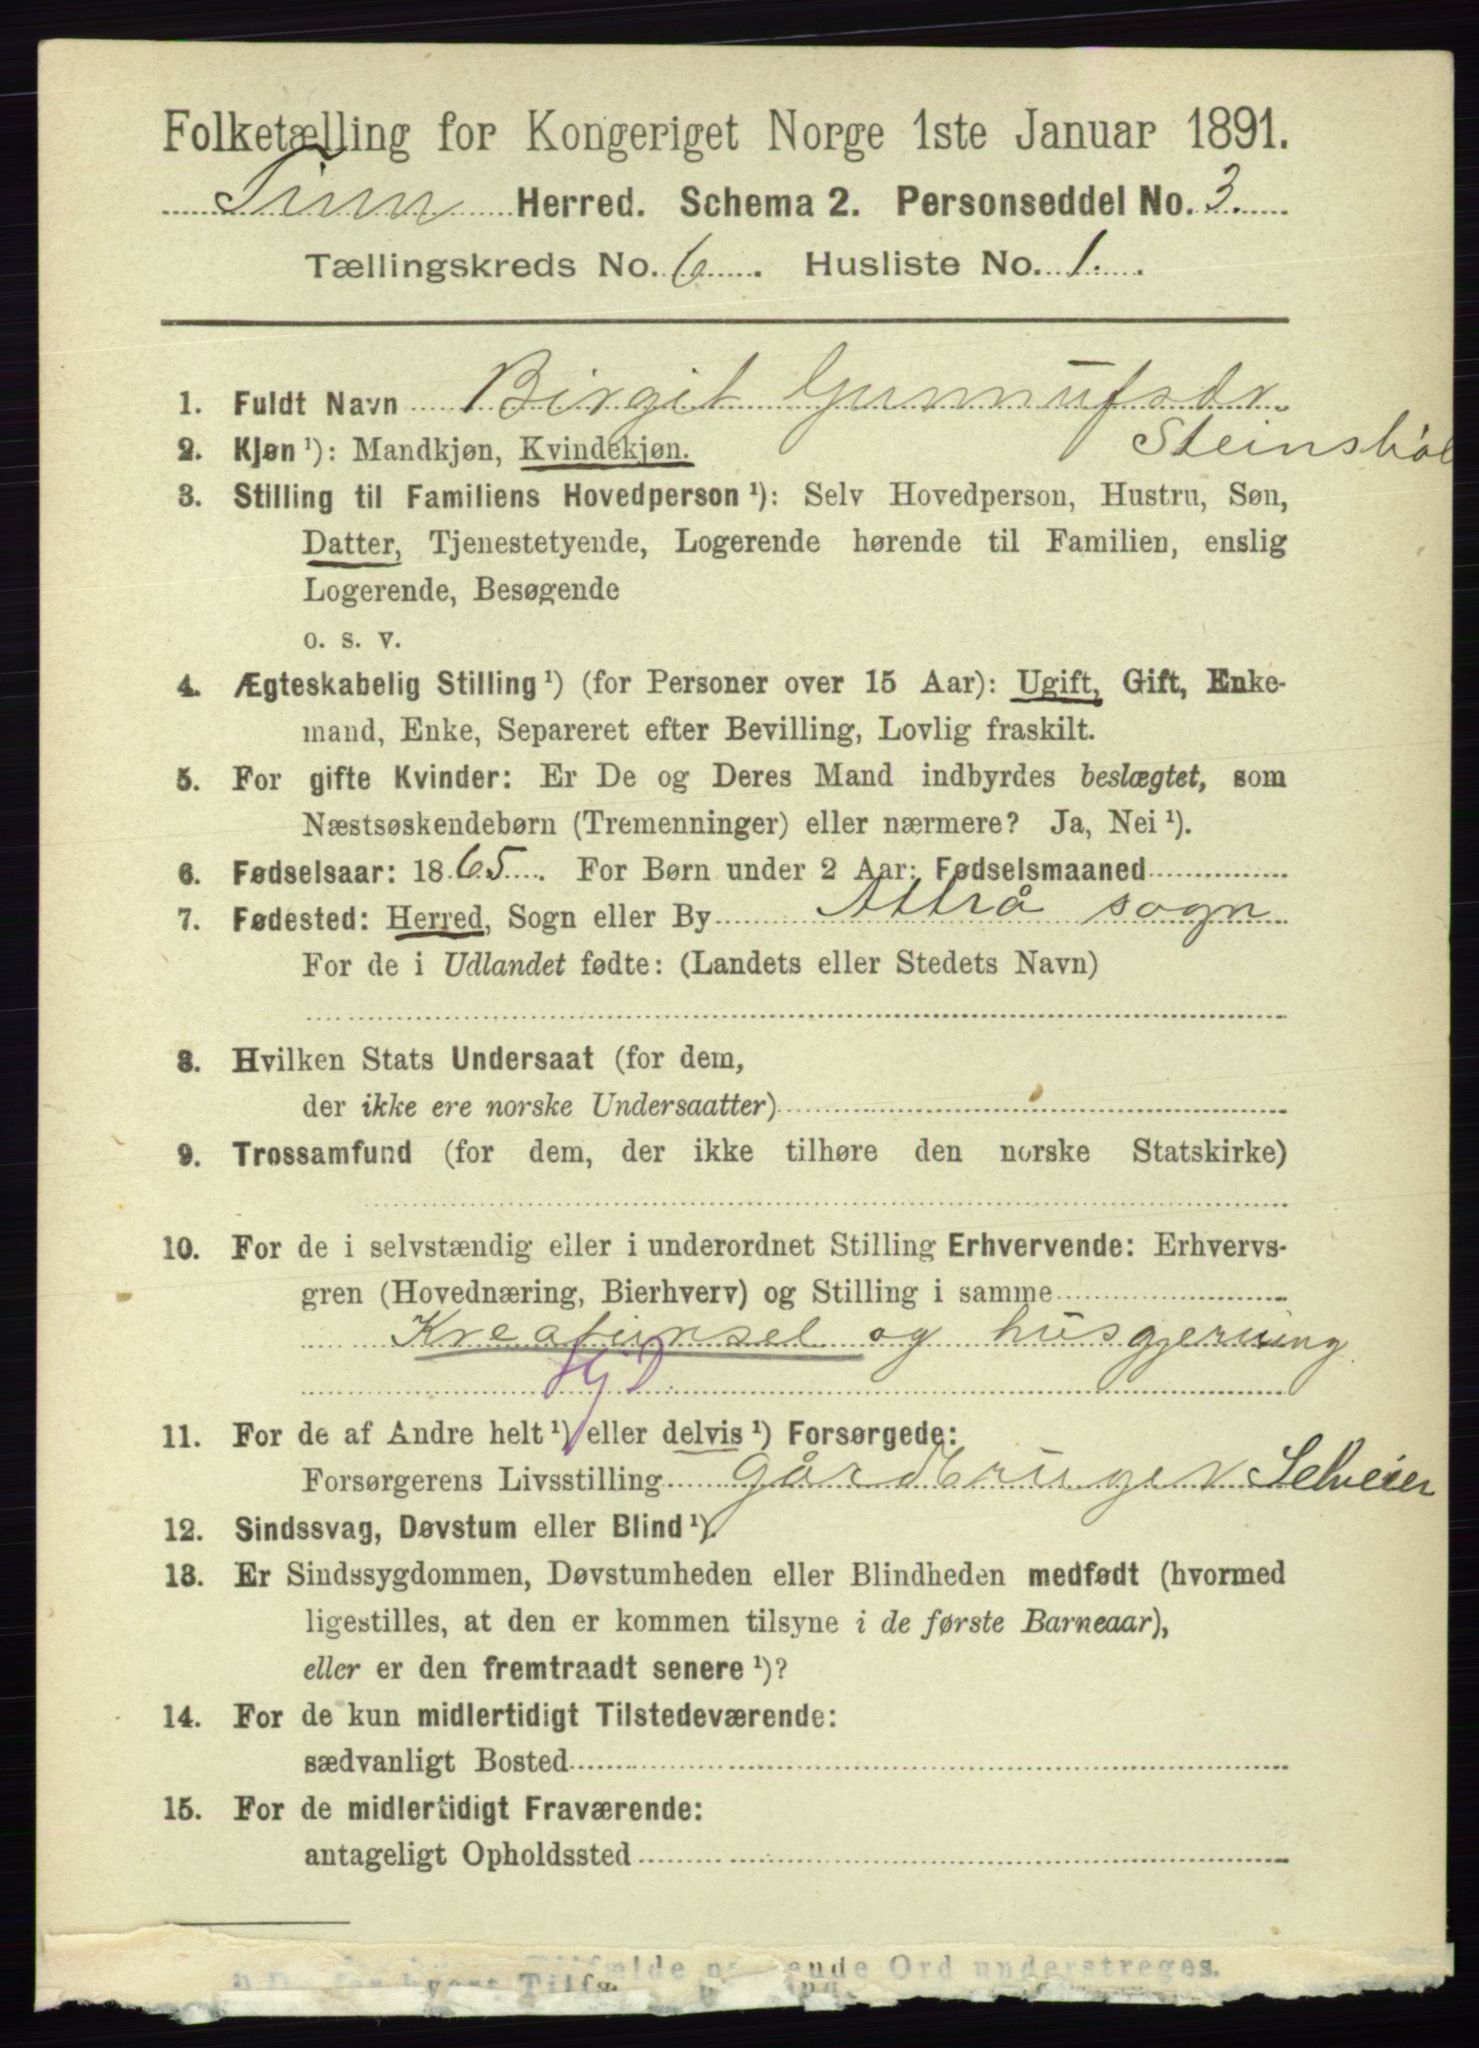 Folketælling for Kongeriget Norge 1ste Januar 1891.
Tinn Herred. Schema 2. Personseddel No. 3.
Tællingskreds No. 6. Husliste No. 1.
1. Fuldt Navn Birgit Gunnufsdr.
Steinsbøl
2. Kjøn ¹): Mandkjøn, Kvindekjøn.
3. Stilling til Familiens Hovedperson ¹): Selv Hovedperson, Hustru, Søn,
Datter, Tjenestetyende, Logerende hørende til Familien, enslig
Logerende, Besøgende
o. s. v.
4. Ægteskabelig Stilling ¹) (for Personer over 15 Aar): Ugift, Gift, Enke-
mand, Enke, Separeret efter Bevilling, Lovlig fraskilt.
5. For gifte Kvinder: Er De og Deres Mand indbyrdes beslægtet, som
Næstsøskendebørn (Tremenninger) eller nærmere? Ja, Nei ¹).
6. Fødselsaar: 1865. For Børn under 2 Aar: Fødselsmaaned
7. Fødested: Herred, Sogn eller By Attrå sogn
For de i Udlandet fødte: (Landets eller Stedets Navn)
8. Hvilken Stats Undersaat (for dem,
der ikke ere norske Undersaatter)
9. Trossamfund (for dem, der ikke tilhøre den norske Statskirke)
10. For de i selvstændig eller i underordnet Stilling Erhvervende: Erhvervs-
gren (Hovednæring, Bierhverv) og Stilling i samme
Kreaturstel og husgjerning
11. For de af Andre helt ¹) eller delvis ¹) Forsørgede:
Forsørgerens Livsstilling Gårdbruger Selveier
12. Sindssvag, Døvstum eller Blind ¹).
13. Er Sindssygdommen, Døvstumheden eller Blindheden medfødt (hvormed
ligestilles, at den er kommen tilsyne i de første Barneaar),
eller er den fremtraadt senere ¹)?
14. For de kun midlertidigt Tilstedeværende:
sædvanligt Bosted
15. For de midlertidigt Fraværende:
antageligt Opholdssted
Ord understreges.